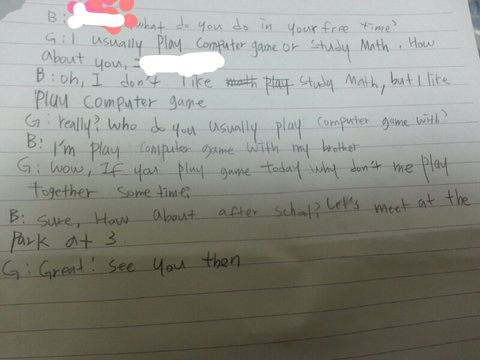 B: what do you do in your free time?
G: I usually play computer game or study Math. How
about you, I
B: oh, I don't like math play study Math, but I like
play computer game
G: really? who do you usually play computer game with?
B: I'm play computer game with my brother
G: wow, If you play game today why don't me play
together some time.
B: sure, How about after school? Let's meet at the
park at 3.
G: Great! see you then